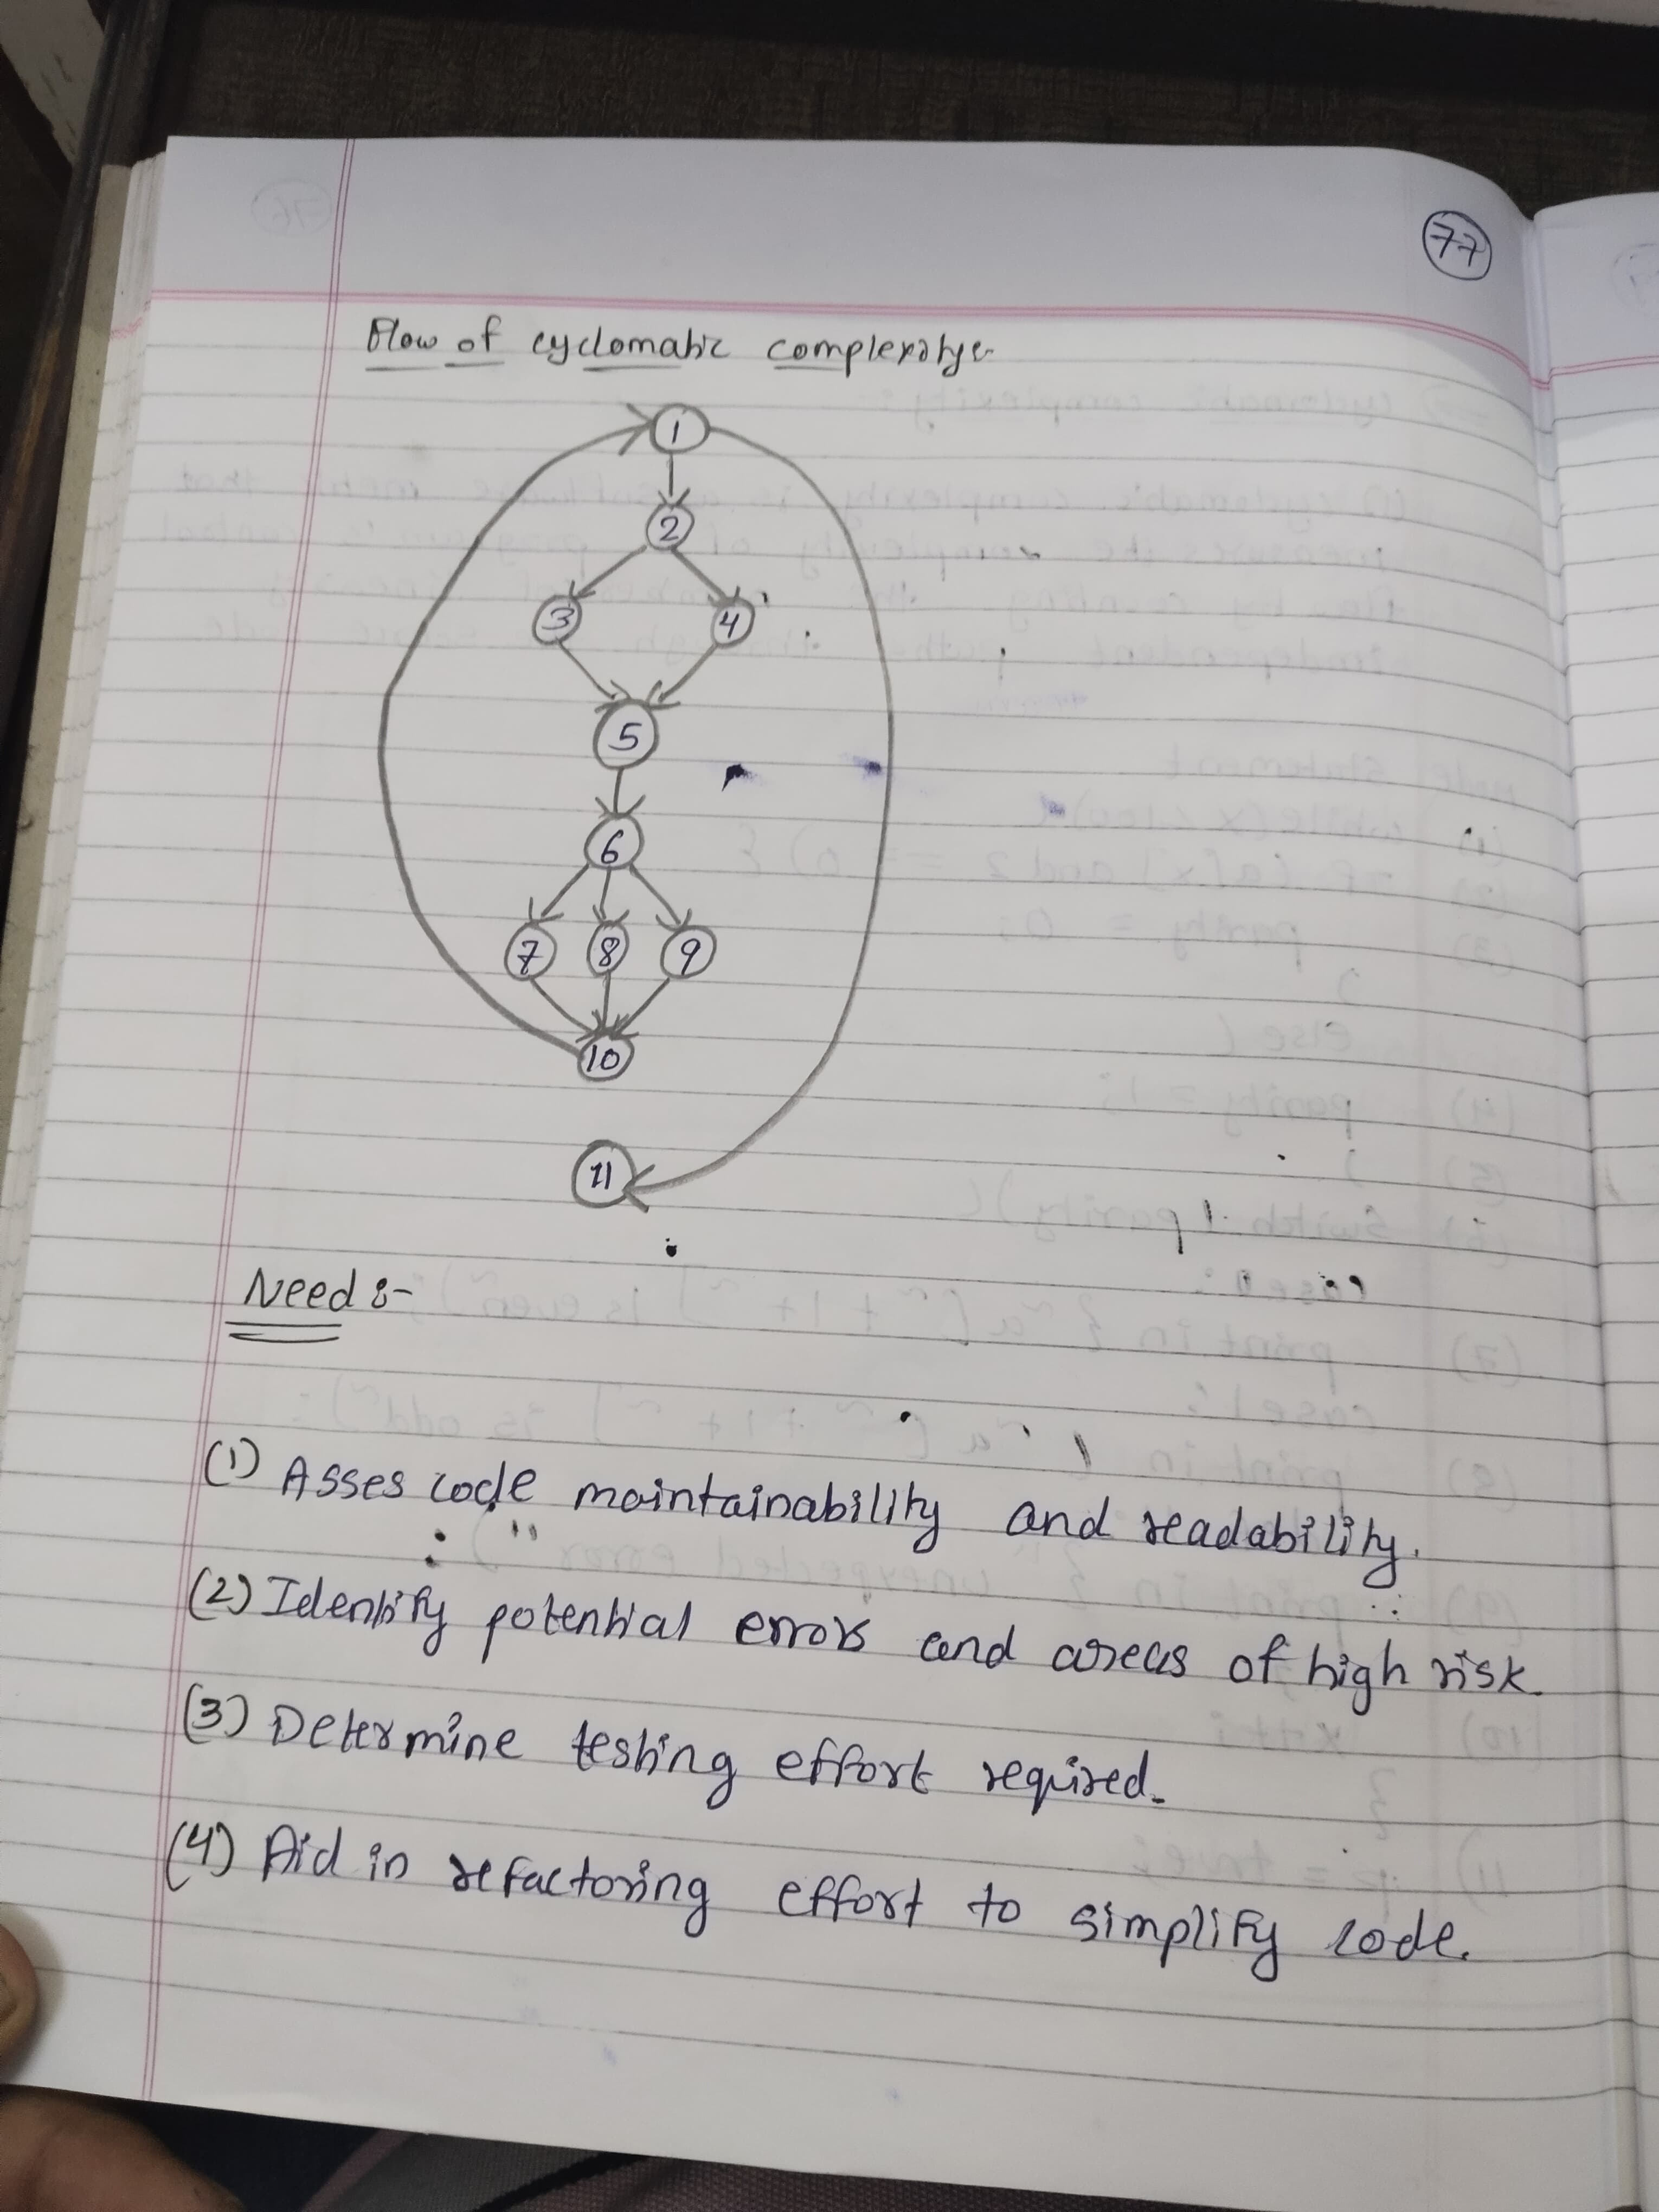 77
Flow of cyclomatic complexity:-
1
2
3 4
5
6
7 8 9
10
11
Need :-
(1) Asses code maintainability and readability.
(2) Identify potential errors and areas of high risk.
(3) Determine testing effort required.
(4) Aid in refactoring effort to simplify code.